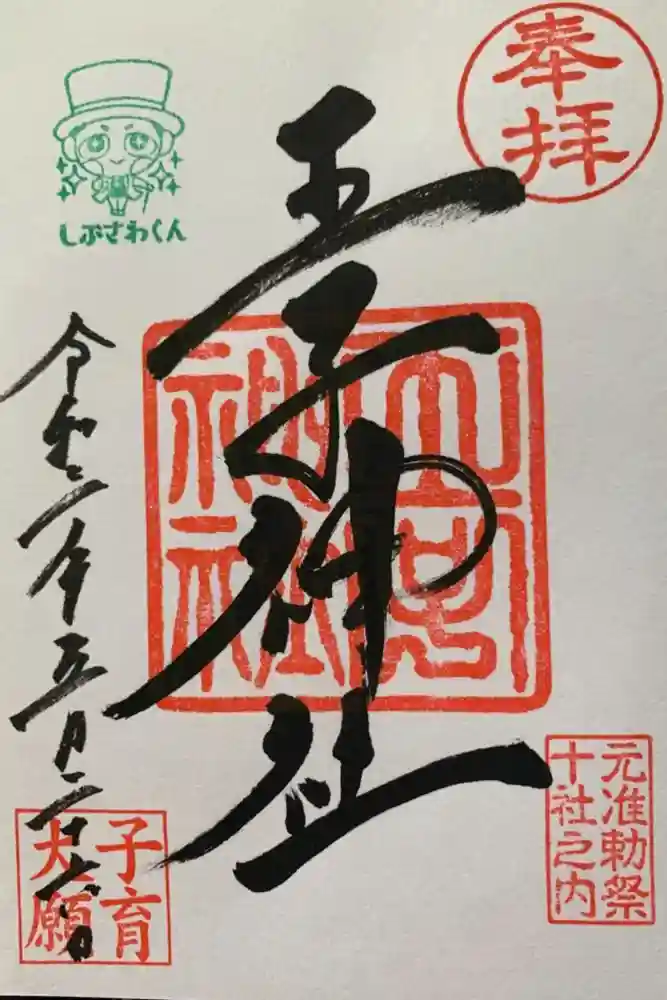 奉拝
王子神社
王子神社
元准勅祭
十社之内
しぶさわくん
令和二年五月二十六日
子育
大願